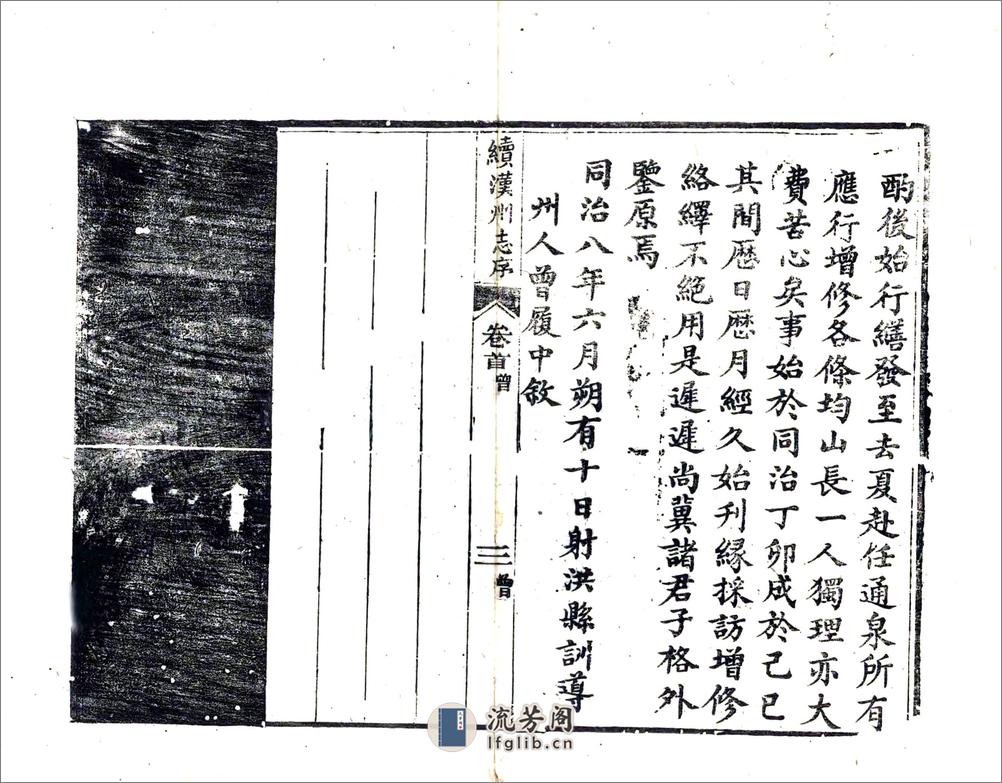 酌後始行繕發至去夏赴任通泉所有
應行增修各條均山長一人獨理亦大
費苦心矣事始於同治丁卯成於己巳
其間歷日歷月經久始刋緣採訪增修
絡繹不絕用是遲遲尚冀諸君子格外
鑒原焉
同治八年六月朔有十日射洪縣訓導
州人曾履中敘
續漢州志序
卷首曾
三
曾
流芳阁
lfglib.cn